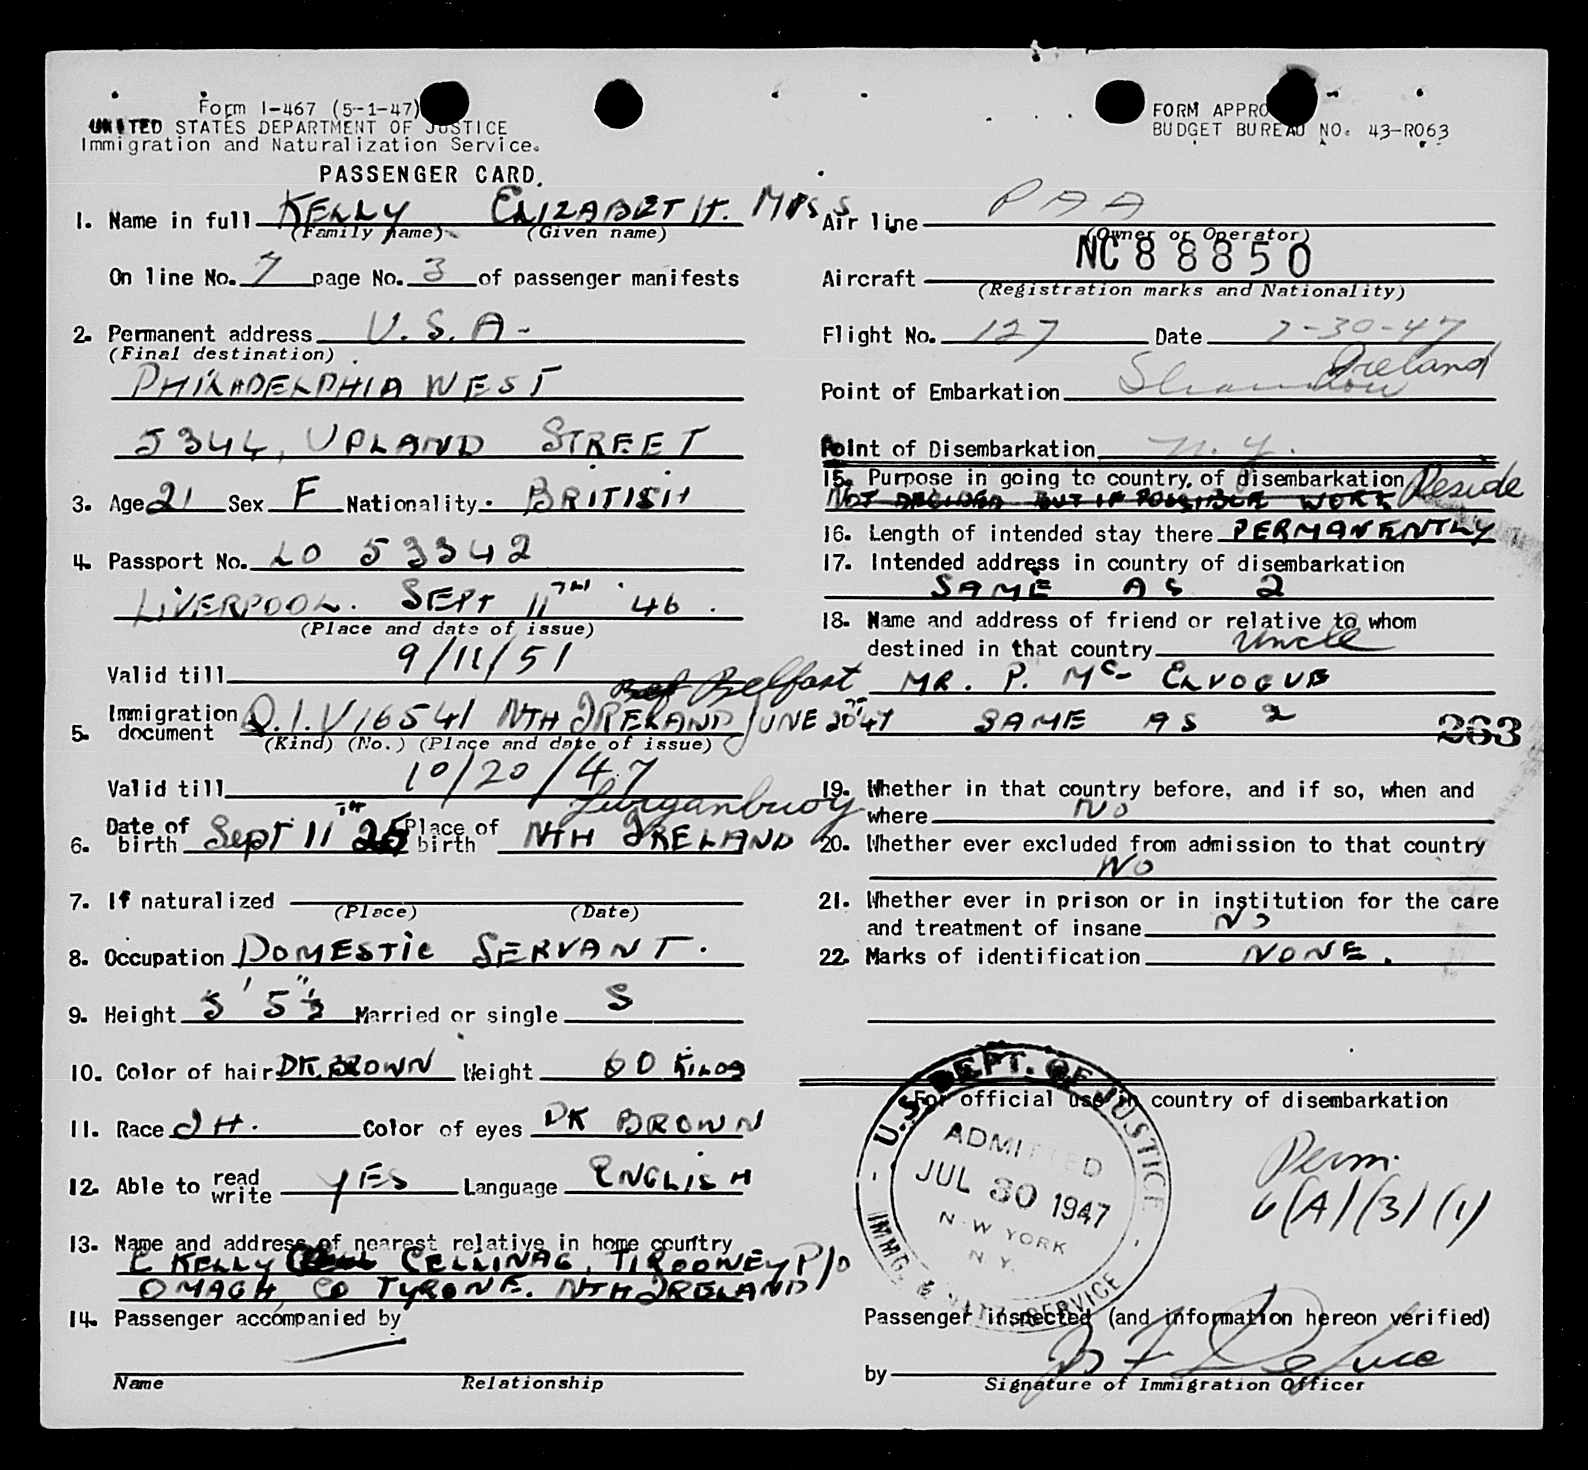 Form I-467 (5-1-47)
UNITED STATES DEPARTMENT OF JUSTICE
Immigration and Naturalization Service.
PASSENGER CARD.
1. Name in full KELLY ELIZABETH. MISS
(Family name) (Given name)
On line No. 7 page No. 3 of passenger manifests
2. Permanent address U.S.A-
(Final destination)
PHILADELPHIA WEST
5344, UPLAND STREET
3. Age 21 Sex F Nationality. BRITISH
4. Passport No. LO 53342
LIVERPOOL. SEPT 11TH '46.
(Place and date of issue)
Valid till 9/11/51
Belfast
5. Immigration document Q.I.V 16541 NTH IRELAND JUNE 20TH 47
(Kind) (No.) (Place and date of issue)
Valid till 10/20/47
6. Date of birth Sept 11TH 25 Place of birth NTH IRELAND
7. If naturalized
(Place) (Date)
8. Occupation DOMESTIC SERVANT.
9. Height 5' 5½" Married or single S
10. Color of hair DK. BROWN Weight 60 KILOS
11. Race IH. Color of eyes DK BROWN
12. Able to read write YES Language ENGLISH
13. Name and address of nearest relative in home country
C KELLY TIROONEY P/O
OMAGH, CO TYRONE. NTH IRELAND
14. Passenger accompanied by
Name Relationship
FORM APPRO
BUDGET BUREAU NO. 43-R063
Air line PAA
(Owner or Operator)
Aircraft NC 88850
(Registration marks and Nationality)
Flight No. 127 Date 7-30-47
Ireland
Point of Embarkation Shannon
Point of Disembarkation N.Y.
15. Purpose in going to country of disembarkation Reside
NOT DECIDED BUT IF POSSIBLE WORK
16. Length of intended stay there PERMANENTLY
17. Intended address in country of disembarkation
SAME AS 2
18. Name and address of friend or relative to whom
destined in that country Uncle
MR. P. Mc-
SAME AS 2
263
19. Whether in that country before, and if so, when and
where NO
20. Whether ever excluded from admission to that country
NO
21. Whether ever in prison or in institution for the care
and treatment of insane NO
22. Marks of identification NONE.
For official use in country of disembarkation
U.S. DEPT. OF JUSTICE
ADMITTED
JUL 30 1947
NEW YORK
N.Y.
IMMG. & NATZ. SERVICE
Perm.
4(A)(3)(1)
Passenger inspected (and information hereon verified)
by
Signature of Immigration Officer